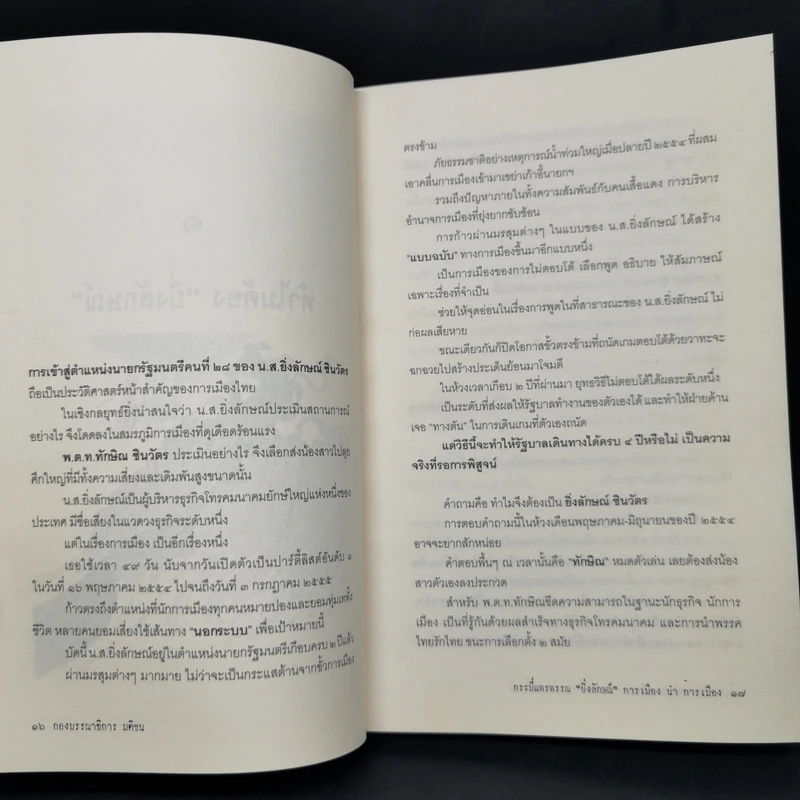 การเข้าสู่ตำแหน่งนายกรัฐมนตรีคนที่ ๒๘ ของ น.ส.ยิ่งลักษณ์ ชินวัตร
ถือเป็นประวัติศาสตร์หน้าสำคัญของการเมืองไทย
ในเชิงกลยุทธ์ยิ่งน่าสนใจว่า น.ส.ยิ่งลักษณ์ประเมินสถานการณ์
อย่างไร จึงโดดลงในสมรภูมิการเมืองที่ดุเดือดร้อนแรง
พ.ต.ท.ทักษิณ ชินวัตร ประเมินอย่างไร จึงเลือกส่งน้องสาวไปลุย
ศึกใหญ่ที่มีทั้งความเสี่ยงและเดิมพันสูงขนาดนั้น
น.ส.ยิ่งลักษณ์เป็นผู้บริหารธุรกิจโทรคมนาคมยักษ์ใหญ่แห่งหนึ่งของ
ประเทศ มีชื่อเสียงในแวดวงธุรกิจระดับหนึ่ง
แต่ในเรื่องการเมือง เป็นอีกเรื่องหนึ่ง
เธอใช้เวลา ๔๙ วัน นับจากวันเปิดตัวเป็นปาร์ตี้ลิสต์อันดับ ๑
ในวันที่ ๑๖ พฤษภาคม ๒๕๕๔ ไปจนถึงวันที่ ๓ กรกฎาคม ๒๕๕๔
ก้าวตรงถึงตำแหน่งที่นักการเมืองทุกคนหมายปองและยอมทุ่มเททั้ง
ชีวิต หลายคนยอมเสี่ยงใช้เส้นทาง "นอกระบบ" เพื่อเป้าหมายนี้
บัดนี้ น.ส.ยิ่งลักษณ์อยู่ในตำแหน่งนายกรัฐมนตรีเกือบครบ ๒ ปีแล้ว
ผ่านมรสุมต่างๆ มากมาย ไม่ว่าจะเป็นกระแสต้านจากขั้วการเมือง
๑๖ กองบรรณาธิการ มติชน
ตรงข้าม
ภัยธรรมชาติอย่างเหตุการณ์น้ำท่วมใหญ่เมื่อปลายปี ๒๕๕๔ ที่ผสม
เอาคลื่นการเมืองเข้ามาเขย่าเก้าอี้นายกฯ
รวมถึงปัญหาภายในทั้งความสัมพันธ์กับคนเสื้อแดง การบริหาร
อำนาจการเมืองที่ยุ่งยากซับซ้อน
การก้าวผ่านมรสุมต่างๆ ในแบบของ น.ส.ยิ่งลักษณ์ ได้สร้าง
"แบบฉบับ" ทางการเมืองขึ้นมาอีกแบบหนึ่ง
เป็นการเมืองของการไม่ตอบโต้ เลือกพูด อธิบาย ให้สัมภาษณ์
เฉพาะเรื่องที่จำเป็น
ช่วยให้จุดอ่อนในเรื่องการพูดในที่สาธารณะของ น.ส.ยิ่งลักษณ์ ไม่
ก่อผลเสียหาย
ขณะเดียวกันก็ปิดโอกาสขั้วตรงข้ามที่ถนัดเกมตอบโต้ด้วยวาทะจะ
ฉกฉวยไปสร้างประเด็นย้อนมาโจมตี
ในห้วงเวลาเกือบ ๒ ปีที่ผ่านมา ยุทธวิธีไม่ตอบโต้ได้ผลระดับหนึ่ง
เป็นระดับที่ส่งผลให้รัฐบาลทำงานของตัวเองได้ และทำให้ฝ่ายค้าน
เจอ "ทางตัน" ในการเดินเกมที่ตัวเองถนัด
แต่วิธีนี้จะทำให้รัฐบาลเดินทางได้ครบ ๔ ปีหรือไม่ เป็นความ
จริงที่รอการพิสูจน์
คำถามคือ ทำไมจึงต้องเป็น ยิ่งลักษณ์ ชินวัตร
การตอบคำถามนี้ในห้วงเดือนพฤษภาคม-มิถุนายนของปี ๒๕๕๔
อาจจะยากสักหน่อย
คำตอบพื้นๆ ณ เวลานั้นคือ "ทักษิณ" หมดตัวเล่น เลยต้องส่งน้อง
สาวตัวเองลงประกวด
สำหรับ พ.ต.ท.ทักษิณขีดความสามารถในฐานะนักธุรกิจ นักการ
เมือง เป็นที่รู้กันด้วยผลสำเร็จทางธุรกิจโทรคมนาคม และการนำพรรค
ไทยรักไทย ชนะการเลือกตั้ง ๒ สมัย
กระบี่แพรพรรณ "ยิ่งลักษณ์" การเมือง นำ การเมือง ๑๗